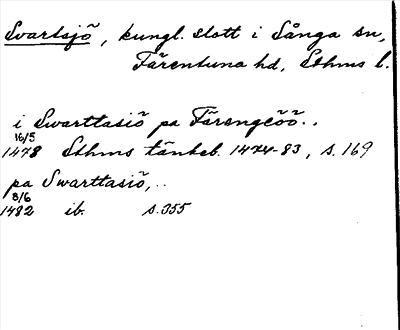 Svartsjö, kungl. slott i Sånga sn,
Färentuna hd, Sthms l.
i Swarttasiö pa Färengöö..
16/5
1478 Sthms tänkeb. 1474-83, s. 169
pa Swarttasiö,..
8/6
1482 ib. s. 355